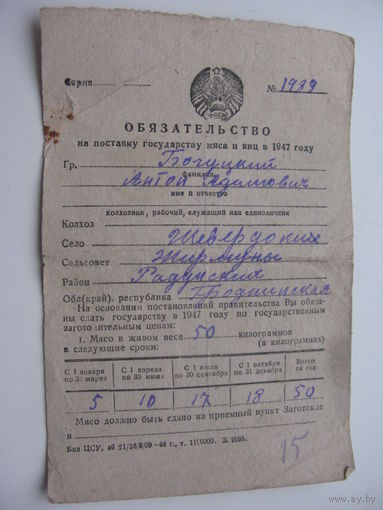 Серия
№ 1939
БССР
ОБЯЗАТЕЛЬСТВО
на поставку государству мяса и яиц в 1947 году
Гр. Богуцкий
фамилия
Антон Адамович
имя и отчество
колхозник, рабочий, служащий или единоличник
Колхоз
Село Шевердоки
Сельсовет Жирмуны
Район Радунский
Обл(край), республика Гродненская
На основании постановлений правительства Вы обяза-
ны сдать государству в 1947 году по государственным
загото ительным ценам:
1. Мясо в живом весе 50 килограммов
в следующие сроки: (в килограммах)
С 1 января по 31 марта С 1 апреля по 30 июня С 1 июля по 30 сентября С 1 октября по 31 декабря Всего за год
5 10 17 18 50
Мясо должно быть сдано на приемный пункт Заготскот
в
Бланк ЦСУ, 46 г., т. 1100000. З. 2008.
15
av.by